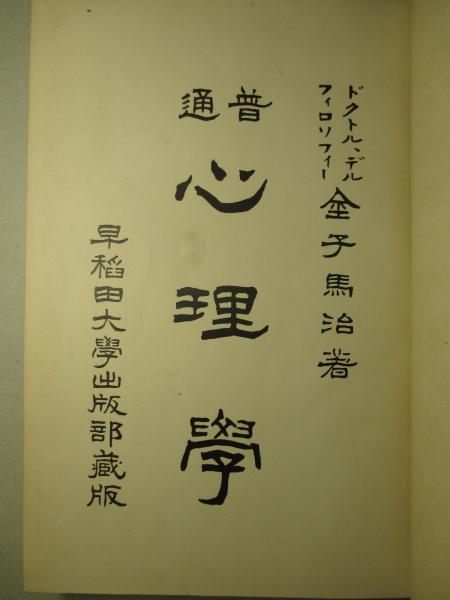 ドクトル、デル
フィロソフィー
金子馬治著
普通
心理學
早稻田大學出版部藏版